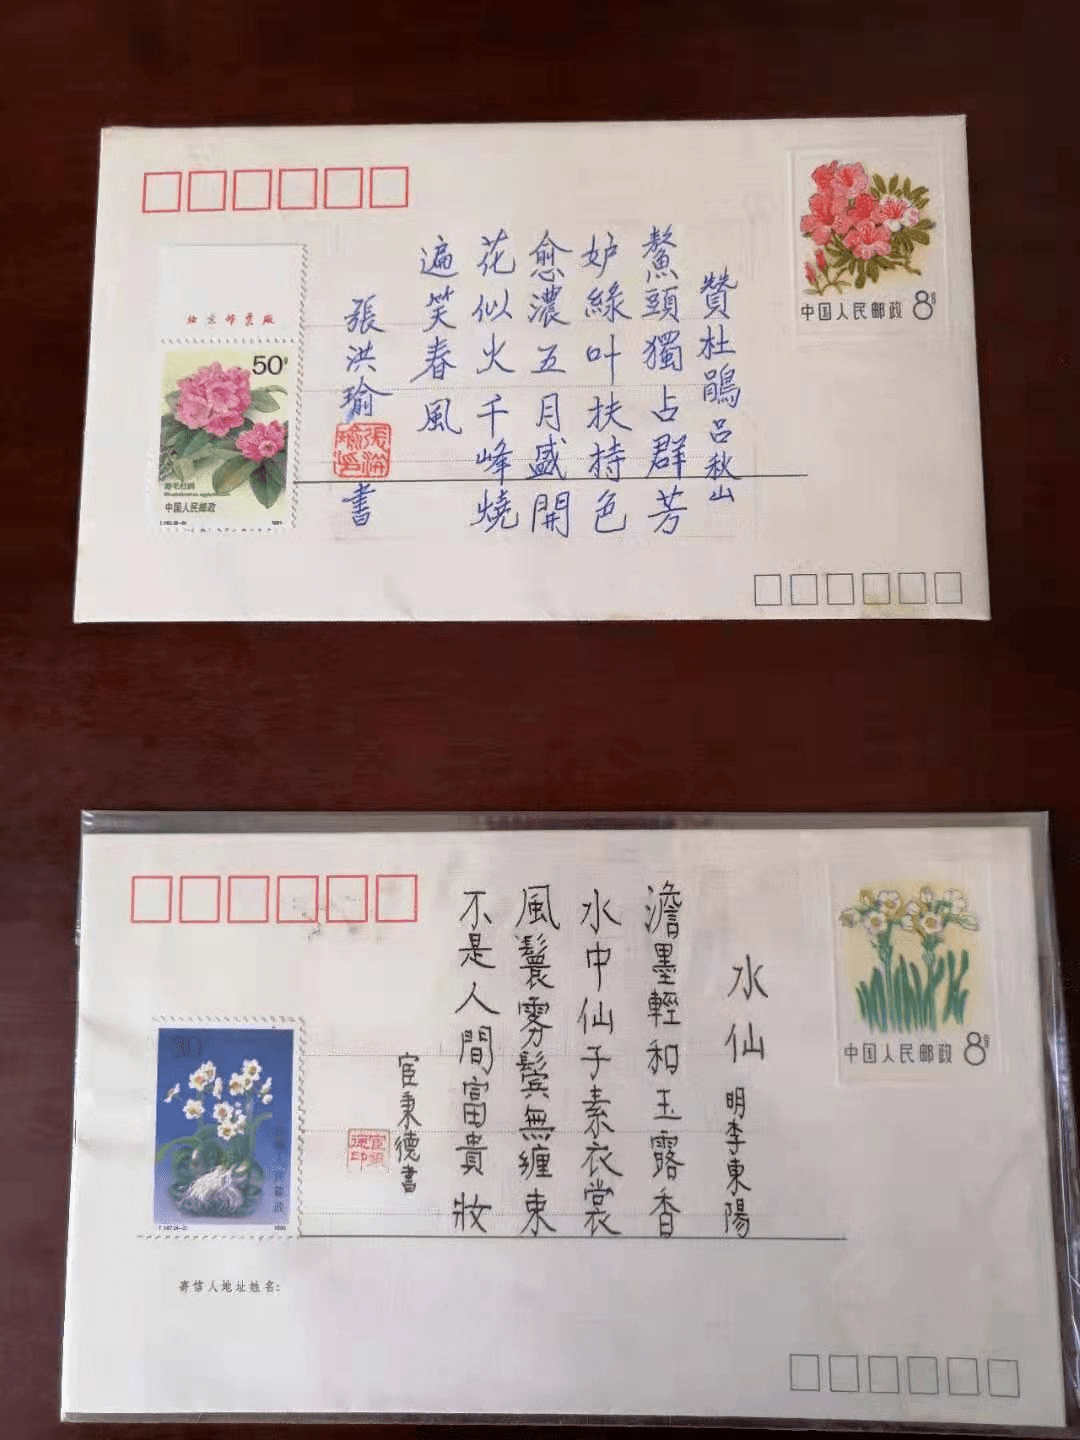 贊杜鵑 呂秋山
鰲頭獨占群芳
妒綠叶扶持色
愈濃五月盛開
花似火千峰燒
遍笑春風
張洪瑜 書
中国人民邮政 8分
北京邮票厂
50分
中国人民邮政
水仙 明李東陽
澹墨輕和玉露香
水中仙子素衣裳
風鬟雾鬓無缠束
不是人間富貴妝
宦秉德書
宦秉德印
中国人民邮政 8分
寄信人地址姓名: